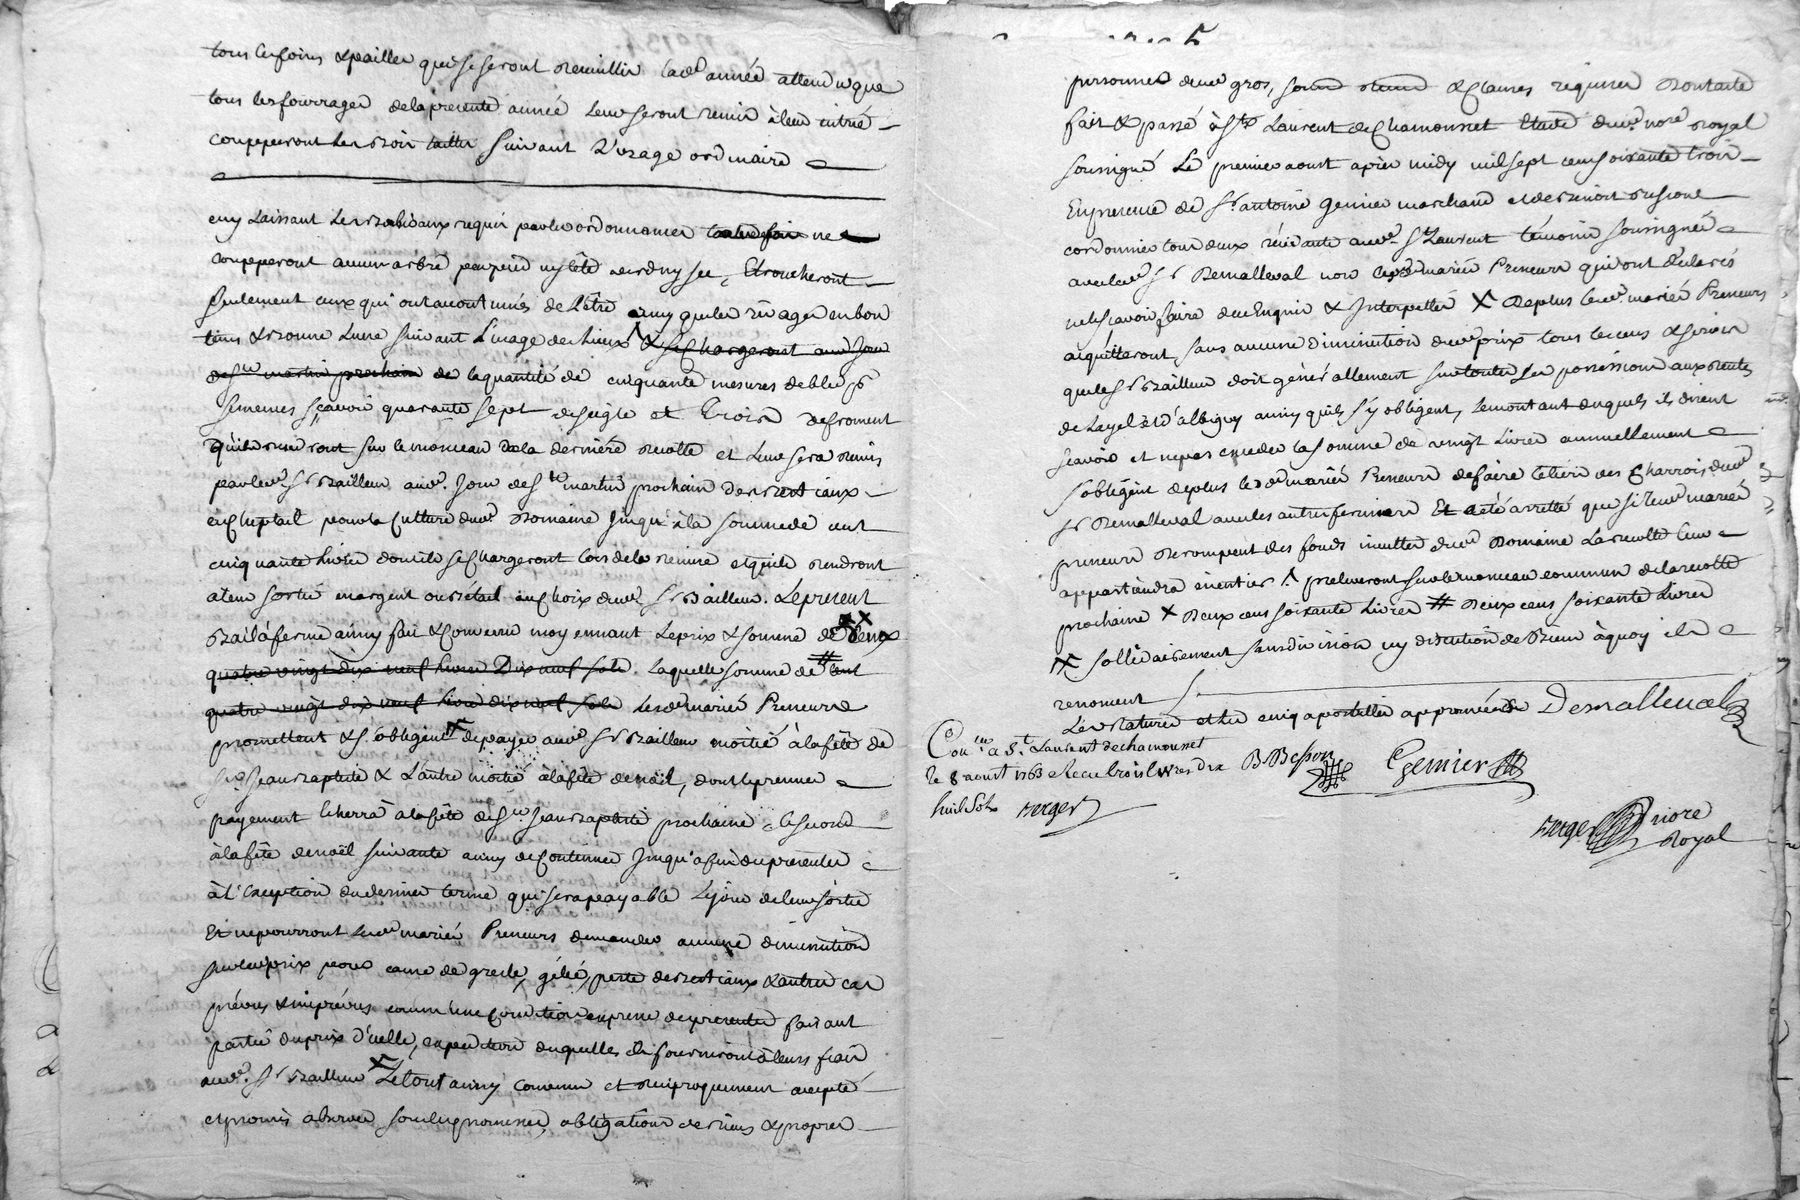 tous les foins & pailles qui se seront recueillis lad.e année attendu que
tous les fourrages de la presente année leur seront remis à leur entrée
coupperont les bois taillis suivant l'uzage ordinaire
en y laissant les baliveaux requis par les ordonnances ne
coupperont aucun arbre par pied ny tête verd ny sec, Ebrocheront
seulement ceux qui ont accoutumés de l'être ainy que les rivages en bon
tems & bonne lune suivant l'uzage des lieux & se Chargeront aud. Jour
de S.t martin prochain de la quantité de cinquante mesures de bled p.r
semences sçavoir quarante sept de seigle et trois de froment
qu'ils prendront sur le monceau de la derniere recolte et leur sera remis
par led. S.r Bailleur aud. Jour de S.t martin prochain des bestiaux
en Cheptail pour la Culture dud. Domaine Jusqu'à la somme de cent
cinquante livres dont ils se Chargeront lors de la remise et qu'ils rendront
a leur sortie en argent ou bétail au Choix dud. S.r Bailleur. Le present
Bail à ferme ainy fait & Convenu moyennant le prix & somme de xx deux
quatre vingt dix neuf livres Dix neuf sols. laquelle somme de # cent
quatre vingt dix neuf livres dix neuf sols lesd. mariés Preneurs
promettent & s'obligent de payer aud. S.r Bailleur moitié à la fête de
S.t Jean Baptiste & l'autre moitié à la fête de noël, dont le premier
payement écherra à la fête de S.t Jean Baptiste prochaine le second
à la fête de noël suivante ainy de Continuer Jusqu'a fin du presentes
à l'Exception du dernier terme qui sera payable le jour de leur sortie
Et ne pourront lesd. mariés Preneurs demander aucune diminution
sur led. prix pour cause de grele, gélée, perte de bestiaux & autres cas
prévus & imprévus comme une Condition expresse des presentes faisant
partie du prix d'icelle, expedition desquelles ils fourniront à leurs frais
aud. S.r Bailleur Le tout ainy convenu et reciproquement accepté
et promis observer sous les promesses, obligations de biens & propres
personnes dud. gros, & Clauses requises Dont acte
fait & passé à S.t Laurent de Chamousset Etude dud. no.re Royal
soussigné Le premier aoust après midy mil sept cens soixante trois
En presence de S.r antoine Genier marchand et de Benoit
cordonnier tous deux résidants aud. S.t Laurent témoins soussignés
avec led. S.r Demalleval non lesd. mariés Preneurs qui ont déclarés
ne le sçavoir faire de ce Enquis & Interpellés X De plus lesd. mariés Preneurs
acquitteront sans aucune diminution dud. prix tous les cens & servis
que led. S.r Bailleur doit généralement sur toutes les possessions aux rentes
de Layel et d'albigny ainy qu'ils s'y obligent, le montant desquels ils disent
sçavoir et ne pas exceder la somme de vingt livres annuellement
s'obligent de plus lesd. mariés Preneurs de faire le tiers des Charrois dud.
S.r Demalleval avec les autres fermiers Et a été arretté que si lesd. mariés
preneurs Derompent des fonds incultes dud. Domaine La recolte leur
appartiendra en entier preleveront sur le monceau commun de la recolte
prochaine X Deux cens soixante Livres # Deux cens soixante Livres
X solidairement sans division ny discution de Biens à quoy ils
renoncent
Les ratures et les cinq apostilles approuvées Demalleval
Con.lé a S.t Laurent de chamousset
le 8 aoust 1763 Receu trois livres dix B. Besson Genier
huit sols Berger
Berger no.re
Royal